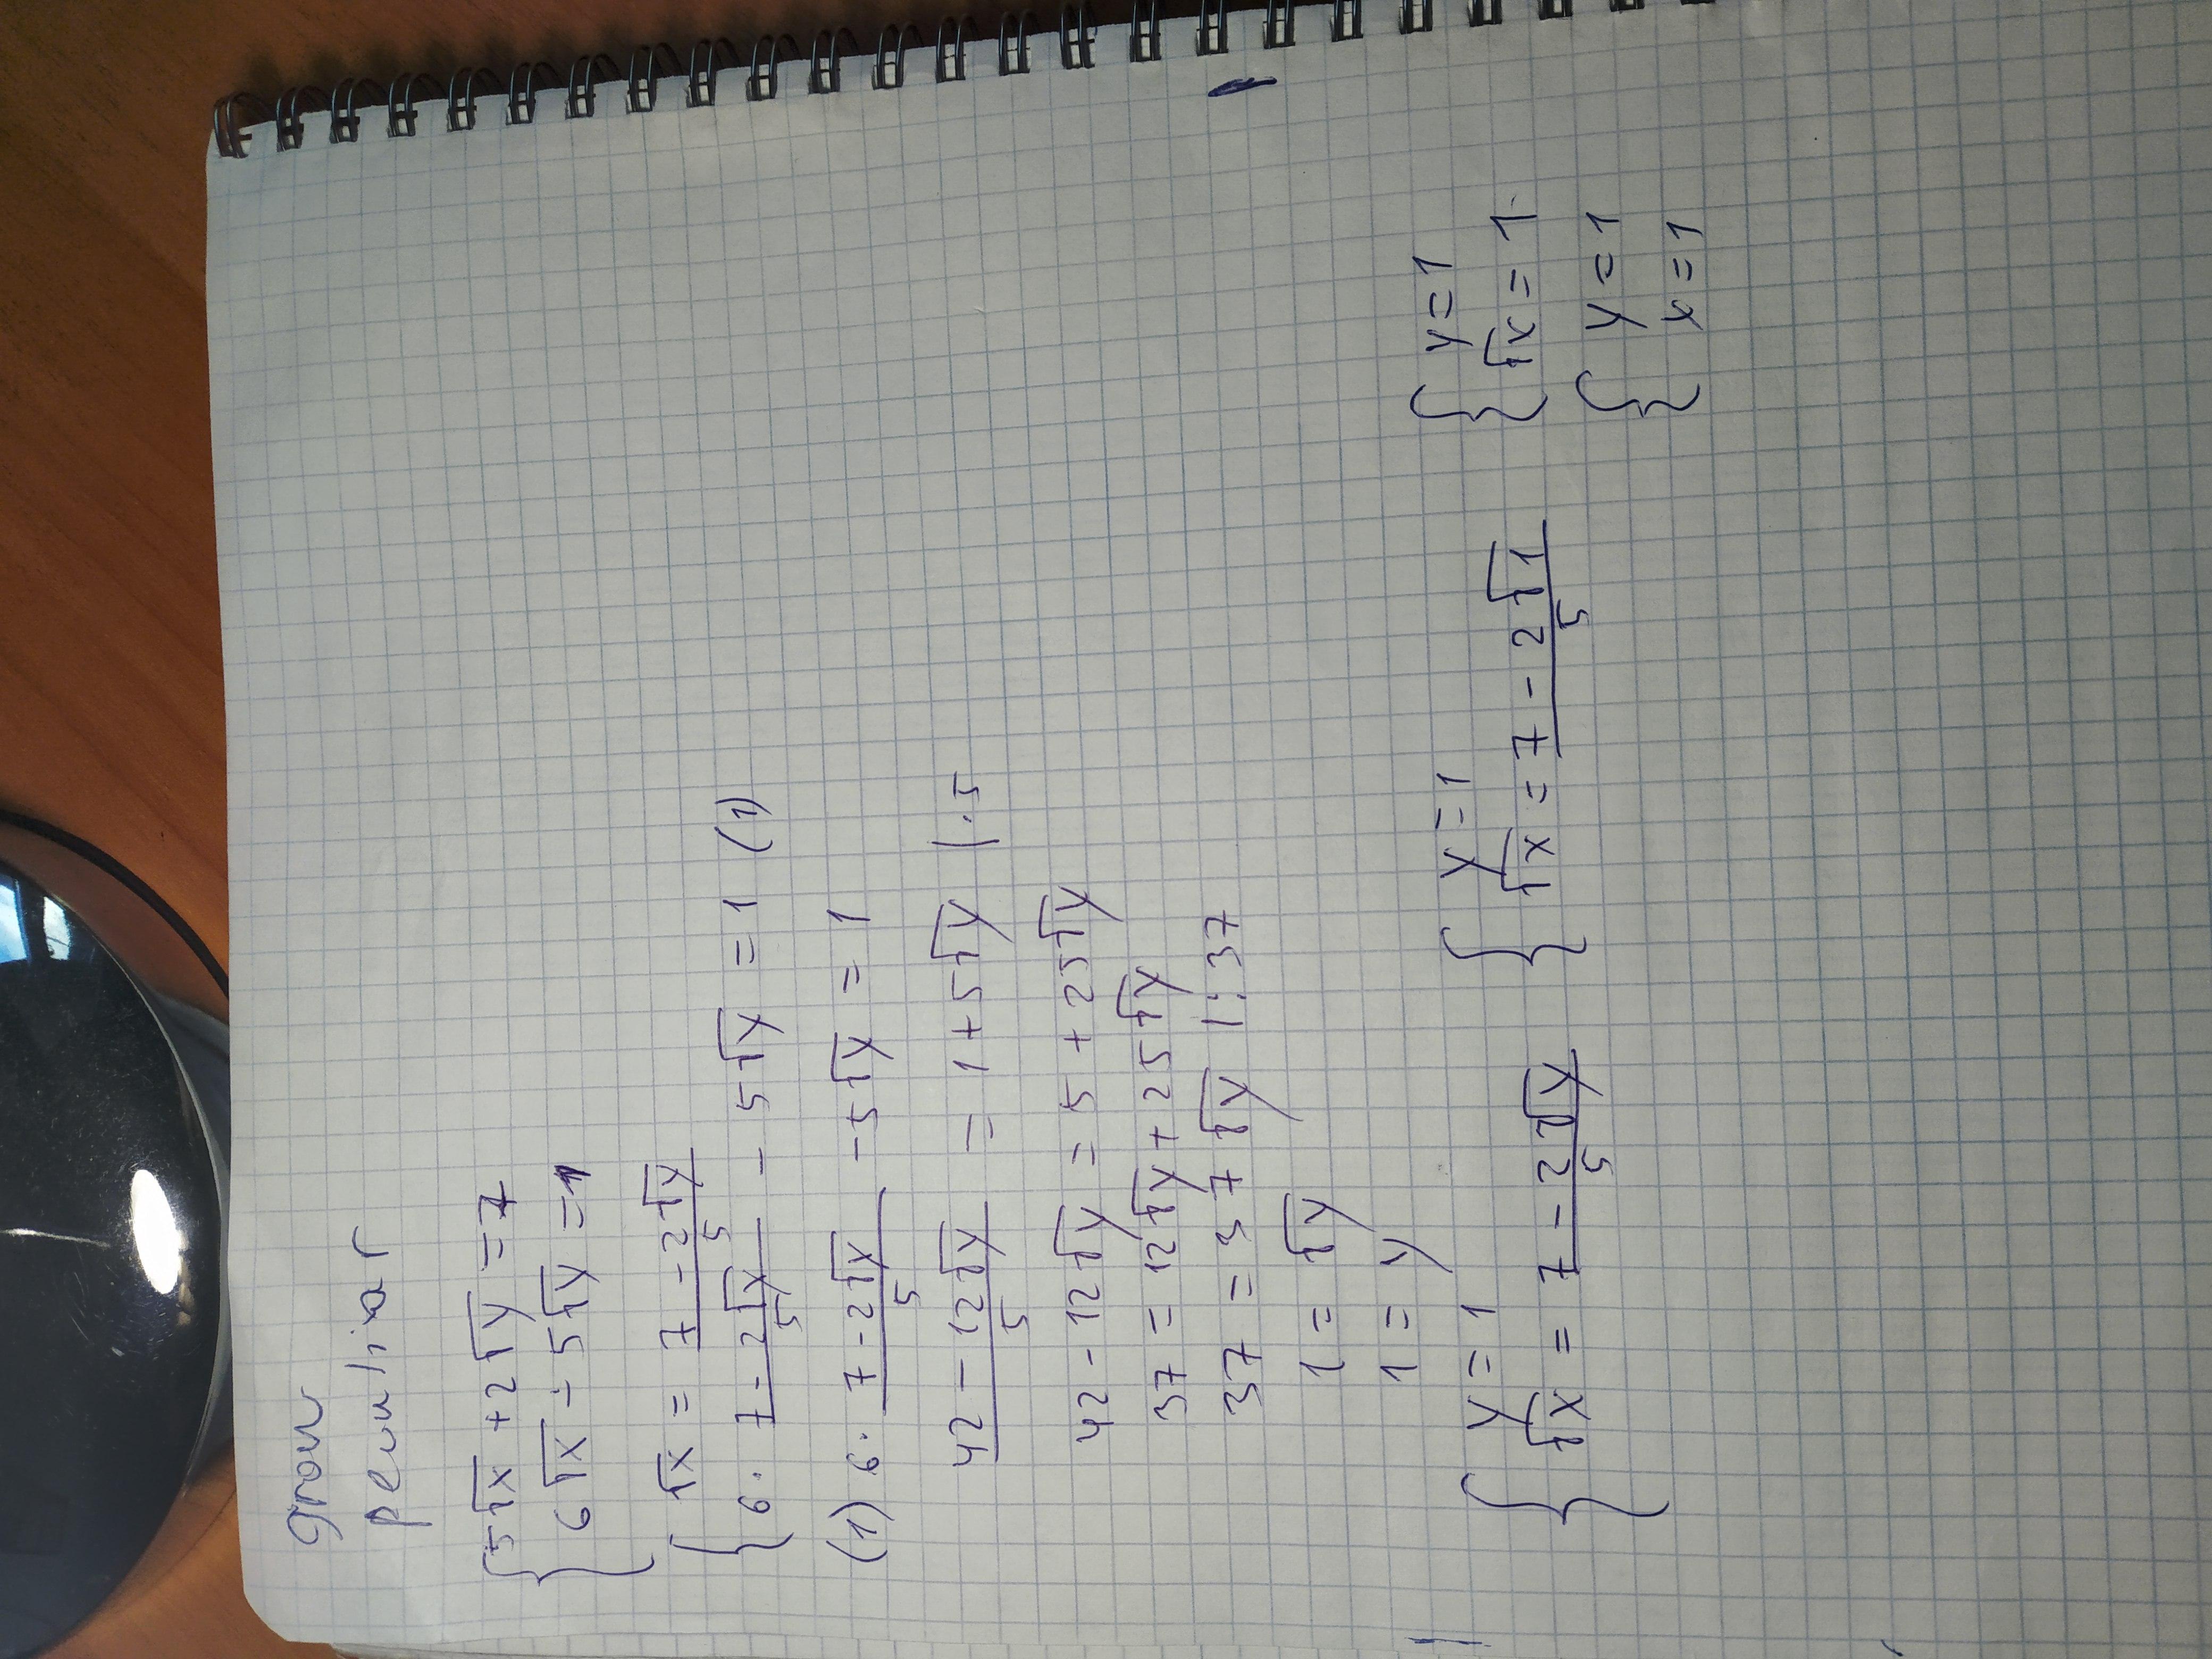 grow
peculiar
{ 5√x + 2√y = 7
6√x - 5√y = 1
{ √x = (7 - 2√y)/5
6 · (7 - 2√y)/5 - 5√y = 1 (1)
(1) 6 · (7 - 2√y)/5 - 5√y = 1
(42 - 12√y)/5 = 1 + 5√y |·5
42 - 12√y = 5 + 25√y
37 = 12√y + 25√y
37 = 37√y |:37
1 = √y
1 = y
{ y = 1
√x = (7 - 2√y)/5
{ y = 1
√x = (7 - 2√1)/5
{ y = 1
√x = 1
{ y = 1
x = 1